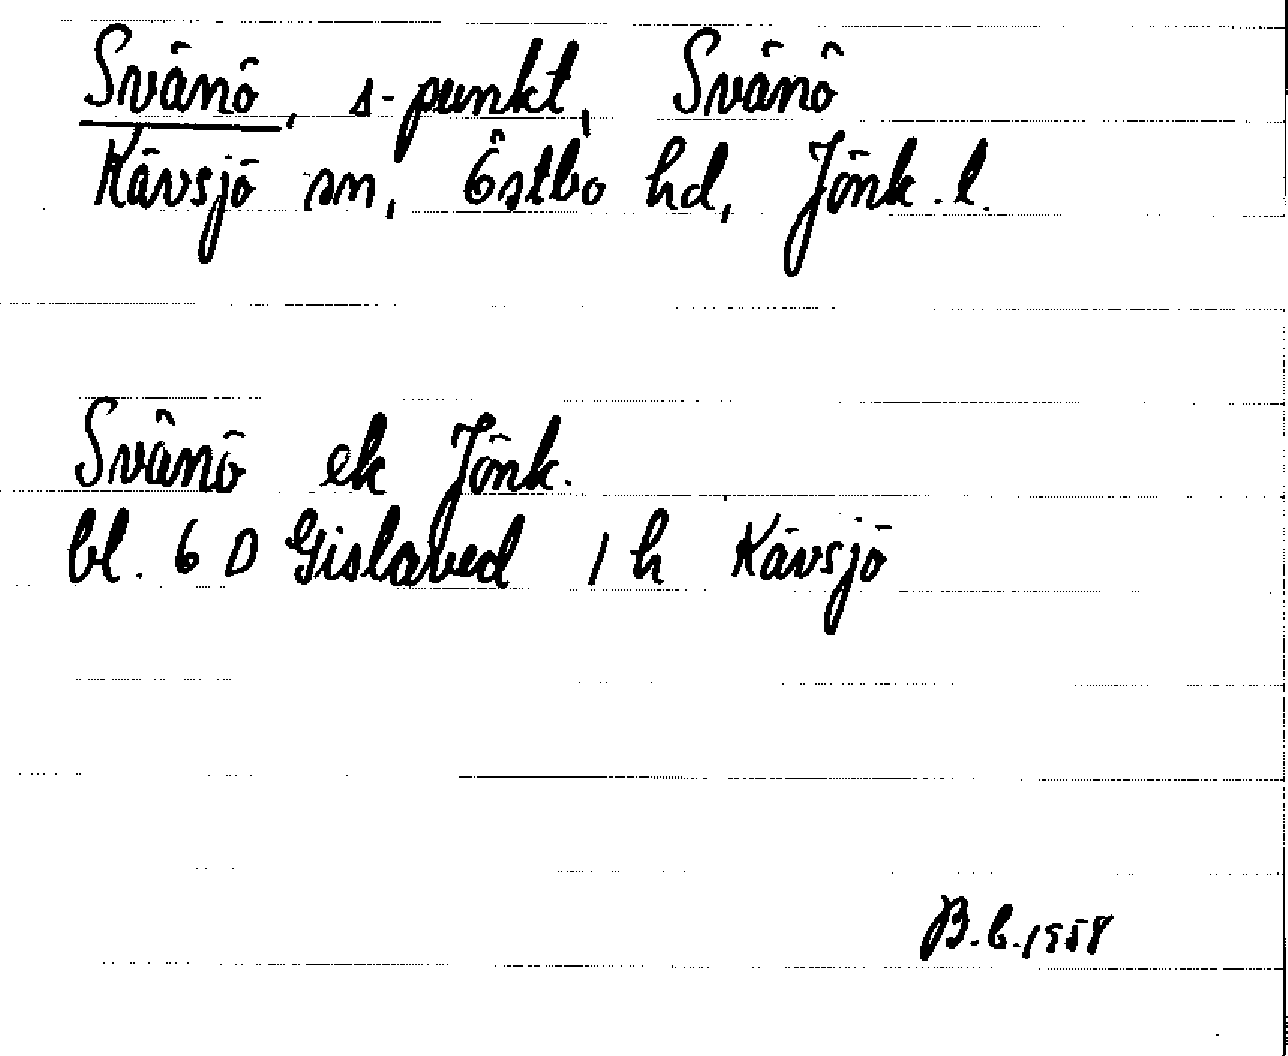 Svänö, s-punkt, Svänö
Kävsjö sn, Östbo hd, Jönk. l.
Svänö ek Jönk.
bl. 6 D Gislaved 1 h Kävsjö
B.E. 1958